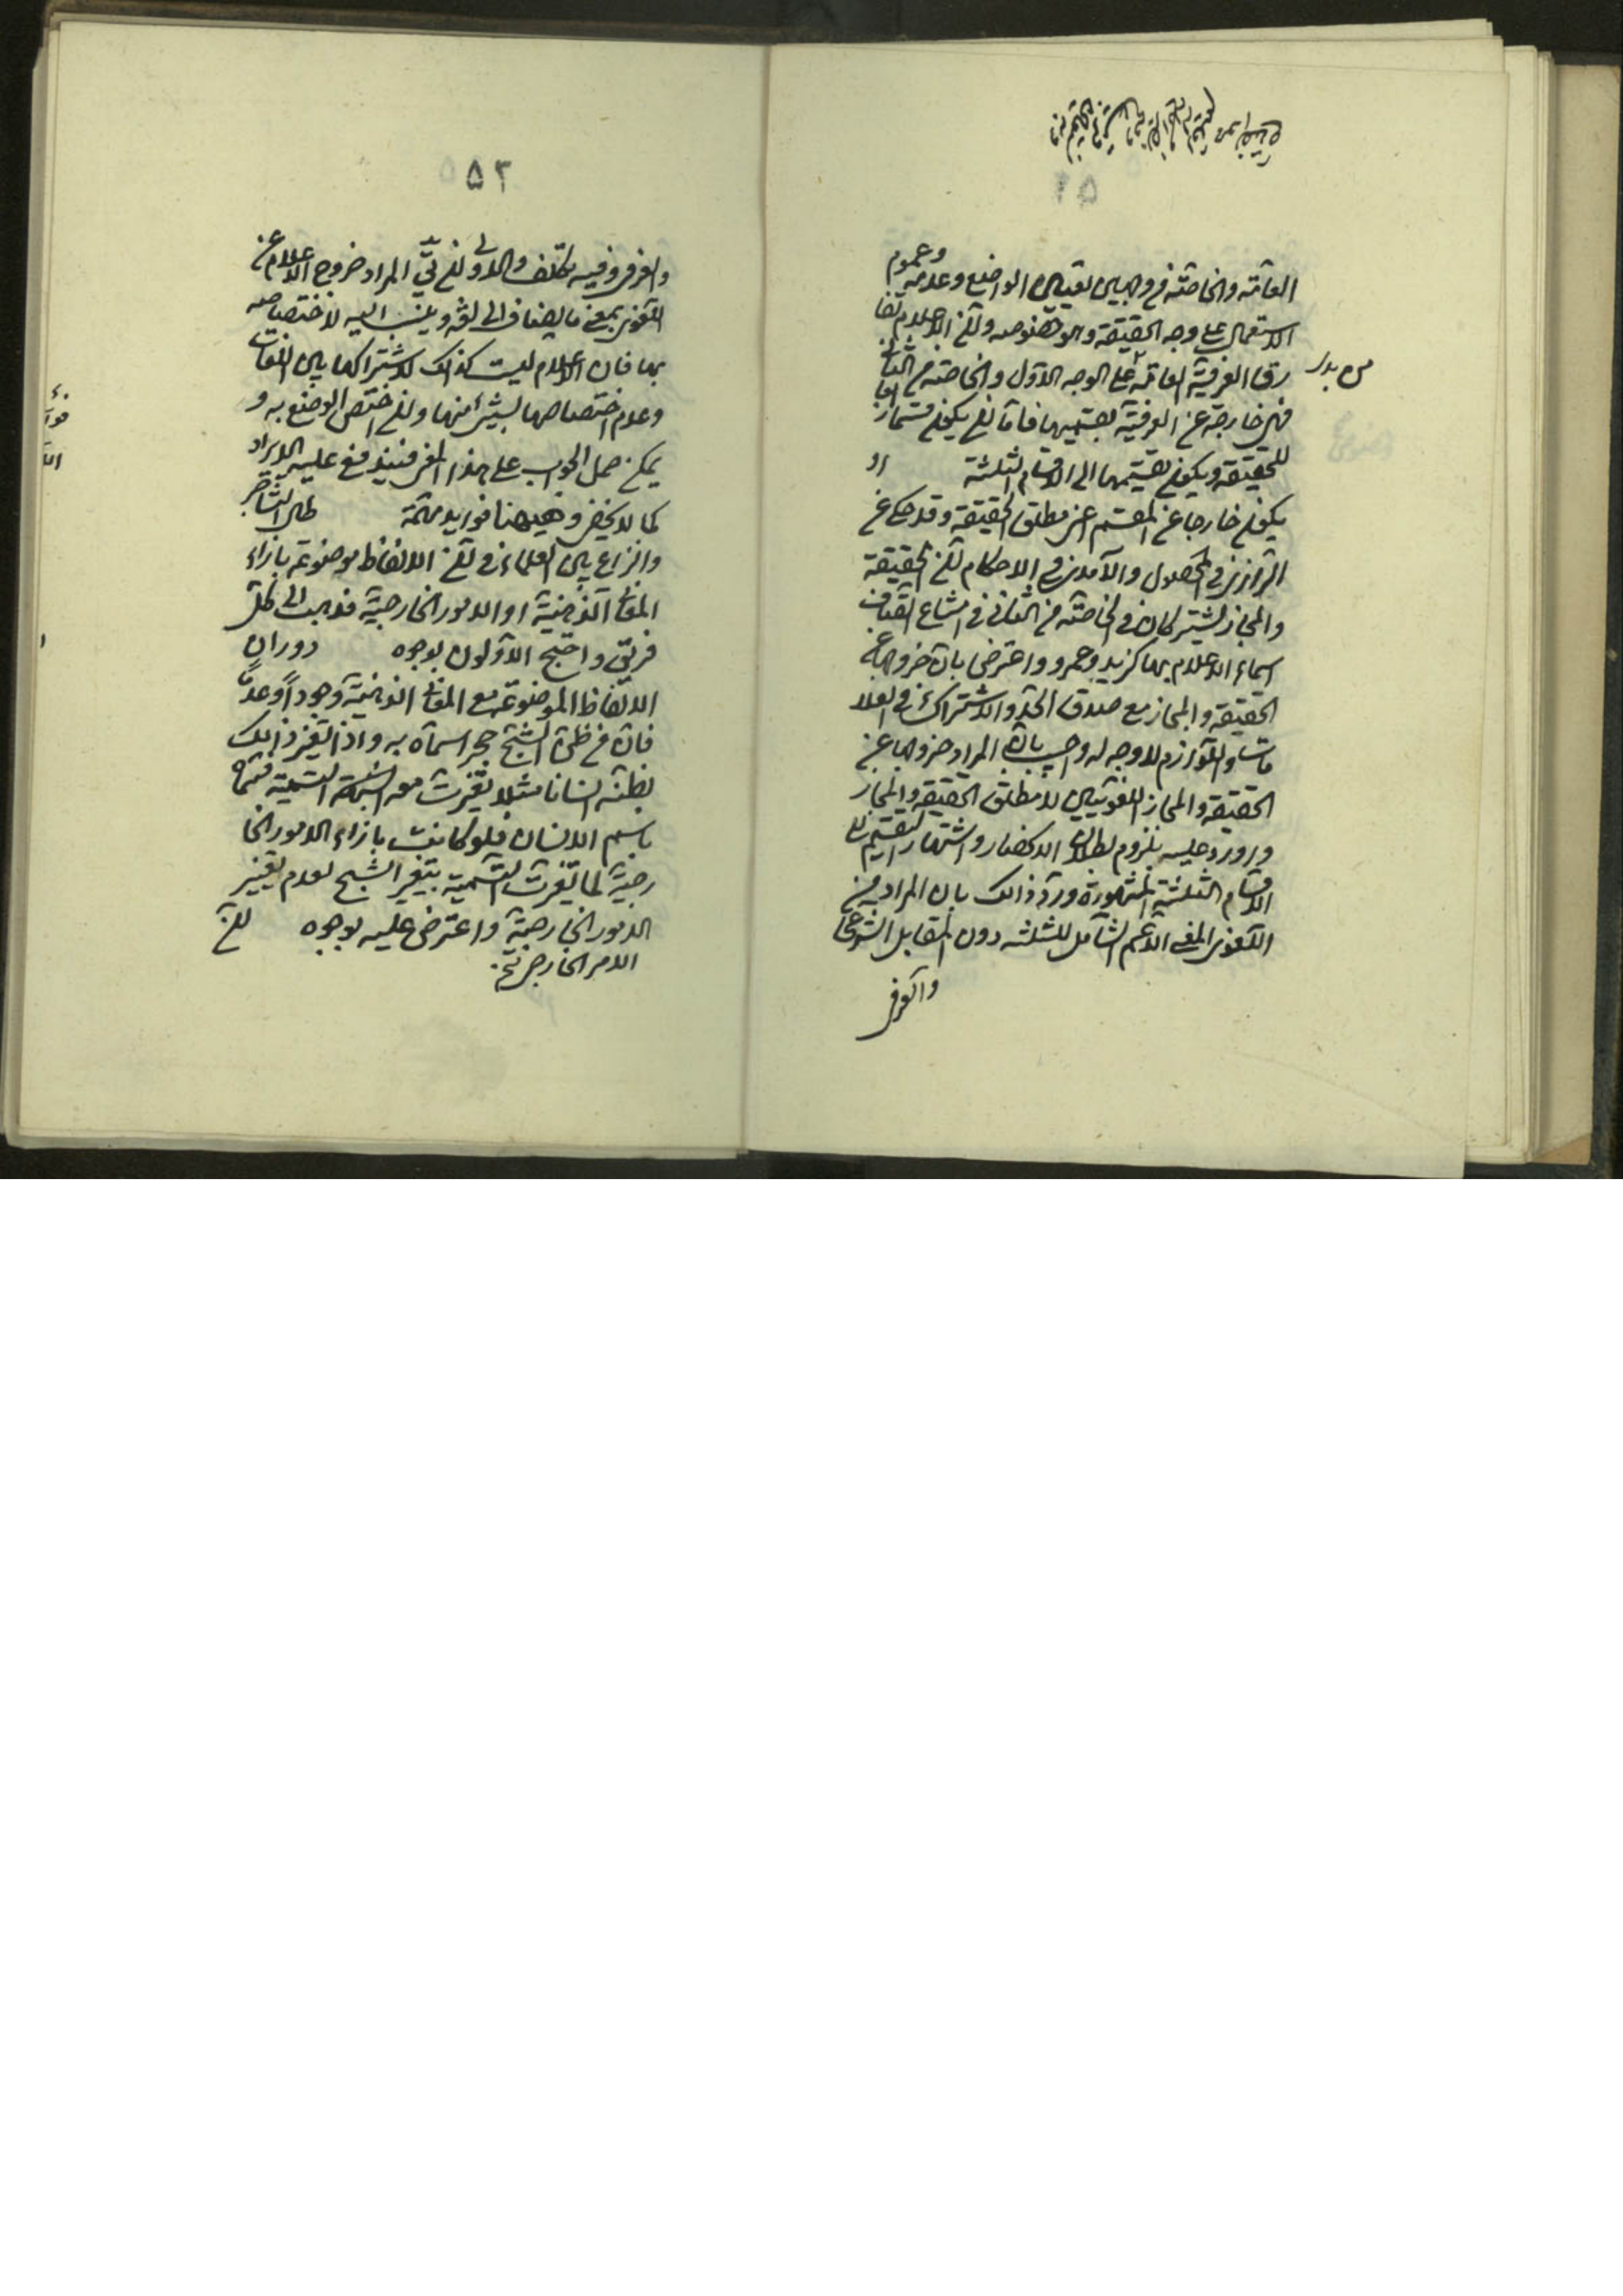 ٥٢
العامة والخاصة من وجهين تعيين الواضع وعدمه وعموم
الاستعمال على وجه الحقيقة وخصوصه ولكن الاعلام تفا
رق العرفية العامة على الوجه الاول والخاصة من الثانى
فهى خارجة عن العرفية بقسميها فاما ان يكون قسما آخر
للحقيقة ويكون تقسيمها الى الاقسام الثلثة او
يكون خارجا عن المقسم اعنى مطلق الحقيقة وقد حكى عن
الرازى فى المحصول والآمدى فى الاحكام ان الحقيقة
والمجاز يشتركان فى امتناع اتصاف
اسماء الاعلام بهما كزيد وعمرو واعترض بان خروجها عن
الحقيقة والمجاز مع صدق الحد والاشتراك فى العلا
مات واللوازم لا وجه له واجيب بان المراد خروجها عن
الحقيقة والمجاز اللغويين لا مطلق الحقيقة والمجاز
واورد عليه بلزوم بطلان الانحصار واشتهار التقسيم الى
الاقسام الثلثة المشهورة ورد ذالك بان المراد من
اللغوى المعنى الاعم الشامل للثلثة دون المقابل للشرعى
والعرفى
٥٣
والعرفى وفيه تكلف والاولى ان يق المراد خروج الاعلام عن
اللغوى بمعنى ما يضاف الى لغة وينسب اليه لاختصاصه
بها فان الاعلام ليست كذالك لاشتراكها بين اللغات
وعدم اختصاصها بشئ منها وان اختص الوضع به و
يمكن حمل الجواب على هذا المعنى فيندفع عليه الايراد
كما لا يخفى وهيهنا فوايد مهمة طال التشاجر
والنزاع بين العلماء فى ان الالفاظ موضوعة بازاء
المعانى الذهنية او الامور الخارجية فذهب الى كل
فريق واحتج الاولون بوجوه دوران
الالفاظ الموضوعة مع المعانى الذهنية وجودا وعدما
فان من ظن الشبح حجرا سماه به واذا تغير ذالك
بظنه انسانا مثلا تغيرت معه التسمية فسماه
باسم الانسان فلو كانت بازاء الامور الخا
رجية لما تغيرت التسمية بتغير الشبح لعدم تغيير
الامور الخارجية واعترض عليه بوجوه ان
الامر الخارجى